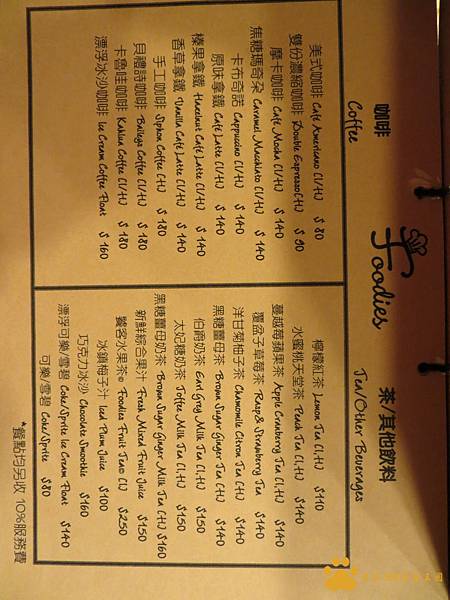 Foodies
咖啡
Coffee
美式咖啡 Café Americano (I/H) $ 80
雙份濃縮咖啡 Double Espresso (H) $ 90
摩卡咖啡 Café Mocha (I/H) $ 140
焦糖瑪奇朵 Caramel Macchiato (I/H) $ 140
卡布奇諾 Cappuccino (I/H) $ 140
原味拿鐵 Café Latte (I/H) $ 140
榛果拿鐵 Hazelnut Café Latte (I/H) $ 140
香草拿鐵 Vanilla Café Latte (I/H) $ 140
手工咖啡 Siphon Coffee (H) $ 180
貝禮詩咖啡 Baileys Coffee (I/H) $ 180
卡魯哇咖啡 Kahlua Coffee (I/H) $ 180
漂浮冰沙咖啡 Ice Cream Coffee Float $ 160
茶/其他飲料
Tea/Other Beverages
檸檬紅茶 Lemon Tea (I,H) $110
水蜜桃天堂茶 Peach Tea (I,H) $140
蔓越莓蘋果茶 Apple Cranberry Tea (I,H) $140
覆盆子草莓茶 Rasp & Strawberry Tea $140
洋甘菊柚子茶 Chamomile Citron Tea (H) $140
黑糖薑母茶 Brown Sugar Ginger Tea (H) $140
伯爵奶茶 Earl Grey Milk Tea (I,H) $150
太妃糖奶茶 Toffee Milk Tea (I,H) $150
黑糖薑母奶茶 Brown Sugar Ginger Milk Tea (H) $160
新鮮綜合果汁 Fresh Mixed Fruit Juice $150
饕客水果茶 Foodies Fruit Tea (I) $250
冰鎮梅子汁 Iced Plum Juice $100
巧克力冰沙 Chocolate Smoothie $160
漂浮可樂/雪碧 Coke/Sprite Ice Cream Float $140
可樂/雪碧 Coke/Sprite $80
*餐點均另收 10%服務費